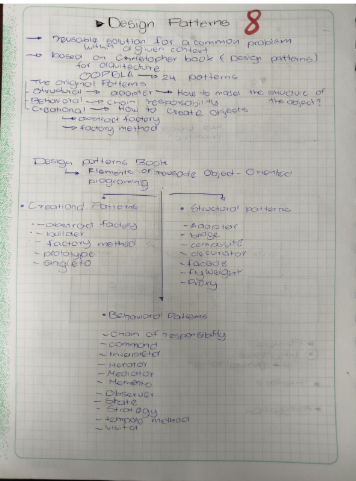 Design Patterns 8
→ reusable solution for a common problem
within a given context
→ based on Christopher book (Design patterns)
for arquitecture
OOPSLA → 24 patterns
The original Patterns
- Structural → adapter → How to make the structure of
the object?
- Behavioral → chain responsability
- Creational → How to create objects
→ abstract factory
→ factory method
Design patterns Book
→ Elements of reusable Object-Oriented
programing
• Creational Patterns
- abstract factory
- builder
- factory method
- prototype
- singleto
• Structural patterns
- Adapter
- bridge
- composite
- decorator
- facade
- flyweight
- Proxy
• Behavioral Patterns
- Chain of responsibility
- command
- Iterator
- Mediator
- Memento
- Observer
- State
- Strategy
- template method
- Visitor